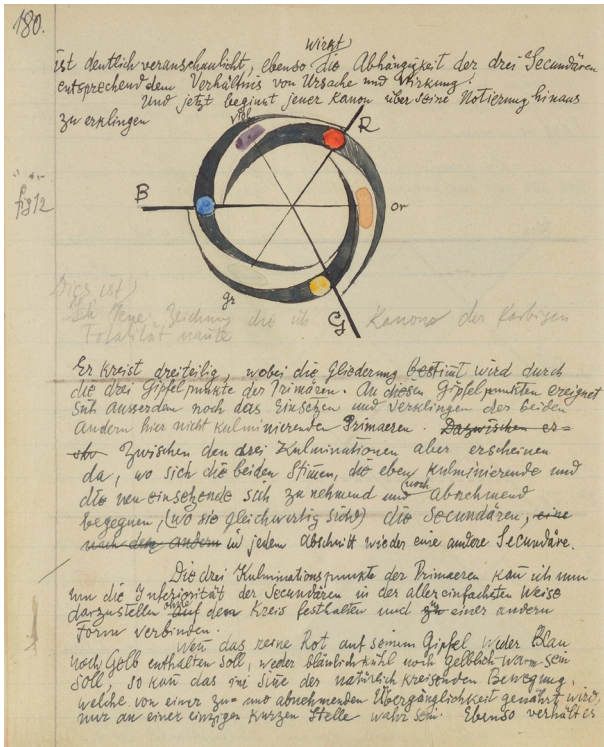 180.
wirkt
ist deutlich veranschaulicht, ebenso die Abhängigkeit der drei Secundären
entsprechend dem Verhältnis von Ursache und Wirkung.
Und jetzt beginnt jener Kanon über seine Notierung hinaus
zu erklingen
viol
R
B
fig 12
or
gr
G
Dies ist
neue Zeichnung die ich Kanon der farbigen
Totalität
Er kreist dreiteilig, wobei die Gliederung bestimt wird durch
die drei Gipfelpunkte der Primären. An diesen Gipfelpunkten ereignet
sich ausserdem noch das Einsetzen und Verklingen der beiden
andern hier nicht kulminierenden Primaeren. Dazwischen er=
Zwischen den drei Kulminationen aber erscheinen
da, wo sich die beiden Stimen, die eben kulminierende und
die neu einsetzende sich zunehmend und noch abnehmend
begegnen, (wo sie gleichwertig sind) die Secundären, eine
nach der andern in jedem Abschnitt wieder eine andere Secundäre.
Die drei Kulminationspunkte der Primaeren kan ich nun
um die Inferiorität der Secundären in der allereinfachsten Weise
darzustellen ohne auf dem Kreis festhalten und zu einer andern
Form verbinden.
Wen das reine Rot auf seinem Gipfel weder Blau
noch Gelb enthalten soll, weder bläulich kühl noch gelblich warm sein
soll, so kan das im Sine der natürlich kreisenden Bewegung,
welche von einer zu= und abnehmenden Übergänglichkeit genährt wird,
nur an einer einzigen kurzen Stelle wahr sein. Ebenso verhält es